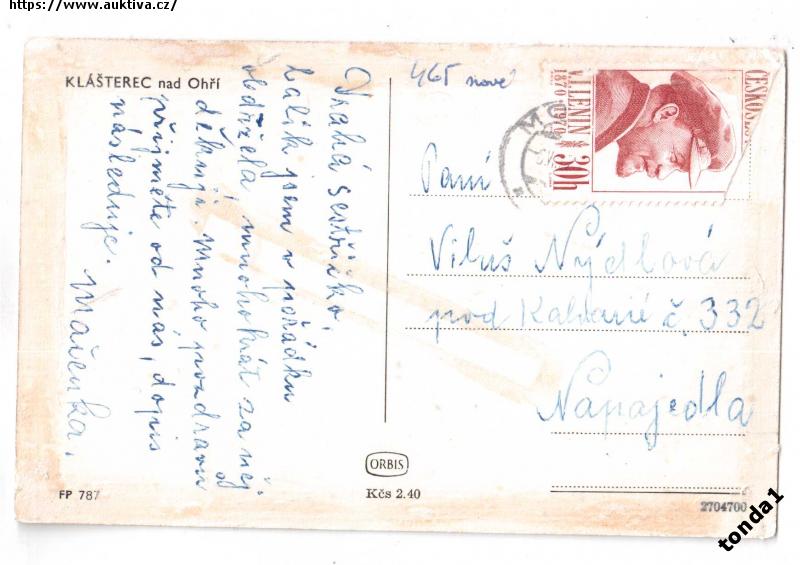 https://www.auktiva.cz/
KLÁŠTEREC nad Ohří
Drahá sestřičko,
balík jsem v pořádku
obdržela, mnohokrát za něj
děkuji. Mnoho pozdravů od
nás,
přijměte od nás, dopis
následuje. Mařenka.
465 nové
ČESKOS
V.I.LENIN
1870/1970
30h
Paní
Viluš Nýdlová
pod Kalvarií č. 332
Napajedla
ORBIS
FP 787
Kčs 2.40
2704700
tonda1